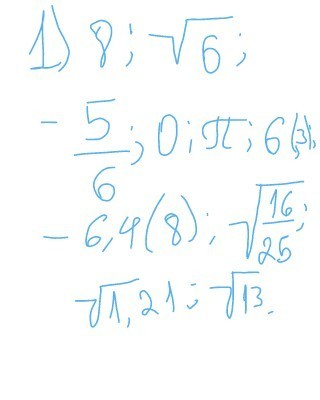 1) 8; √6;
- 5/6; 0; π; 6,(3);
- 6,4(8); √16/25;
√1,21; √13.